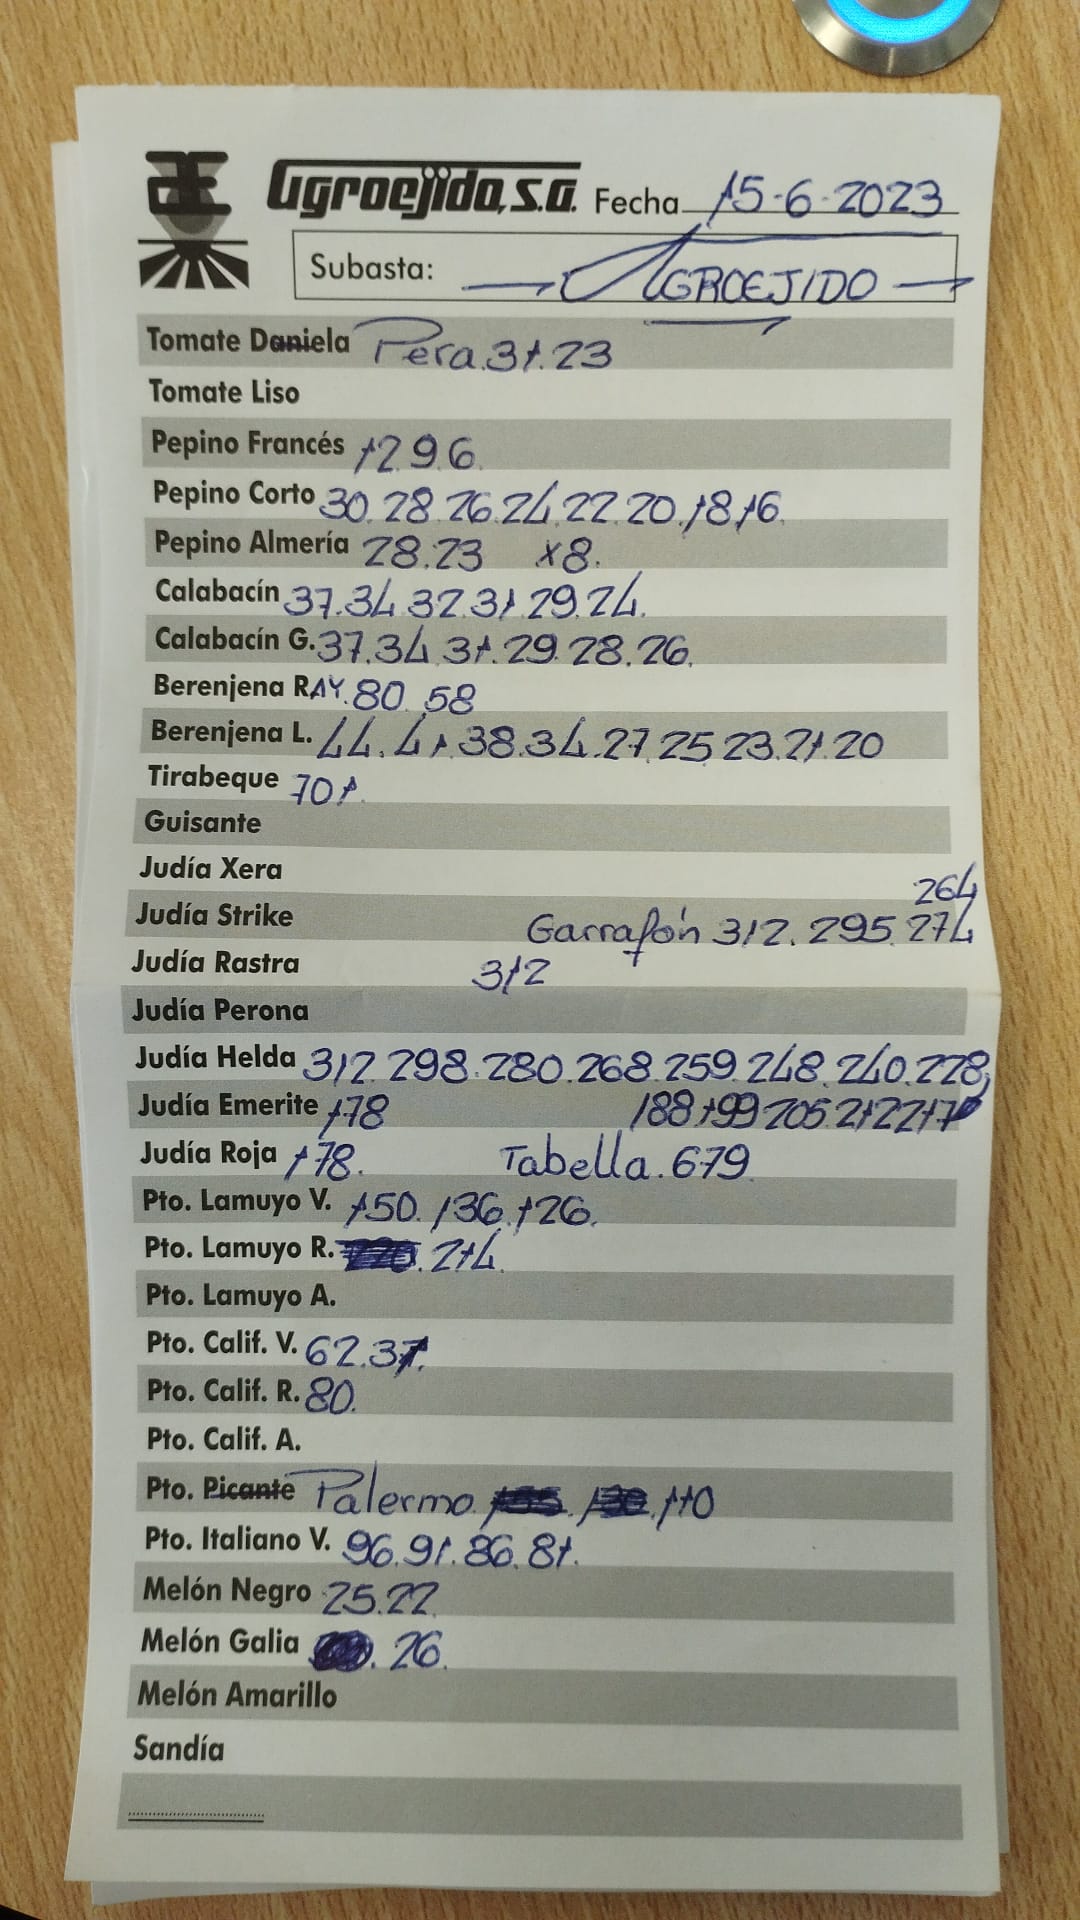 Agroejido, S.A. Fecha 15-6-2023
Subasta: AGROEJIDO
Tomate Daniela Pera. 31. 23
Tomate Liso
Pepino Francés 12. 9. 6.
Pepino Corto 30. 28. 26. 24. 22. 20. 18. 16.
Pepino Almería 28. 23 x8.
Calabacín 37. 34. 32. 31. 29. 24.
Calabacín G. 37. 34. 31. 29. 28. 26.
Berenjena RAY. 80. 58
Berenjena L. 44. 41. 38. 34. 27. 25. 23. 21. 20
Tirabeque 701.
Guisante
Judía Xera
264
Judía Strike Garrafón 312. 295. 274
Judía Rastra 312
Judía Perona
Judía Helda 312. 298. 280. 268. 259. 248. 240. 228,
Judía Emerite 178 188 199 205. 212 217
Judía Roja 178. Tabella. 679.
Pto. Lamuyo V. 150. 136. 126.
Pto. Lamuyo R. 214.
Pto. Lamuyo A.
Pto. Calif. V. 62. 37.
Pto. Calif. R. 80.
Pto. Calif. A.
Pto. Picante Palermo 110
Pto. Italiano V. 96. 91. 86. 81.
Melón Negro 25. 22.
Melón Galia . 26.
Melón Amarillo
Sandía